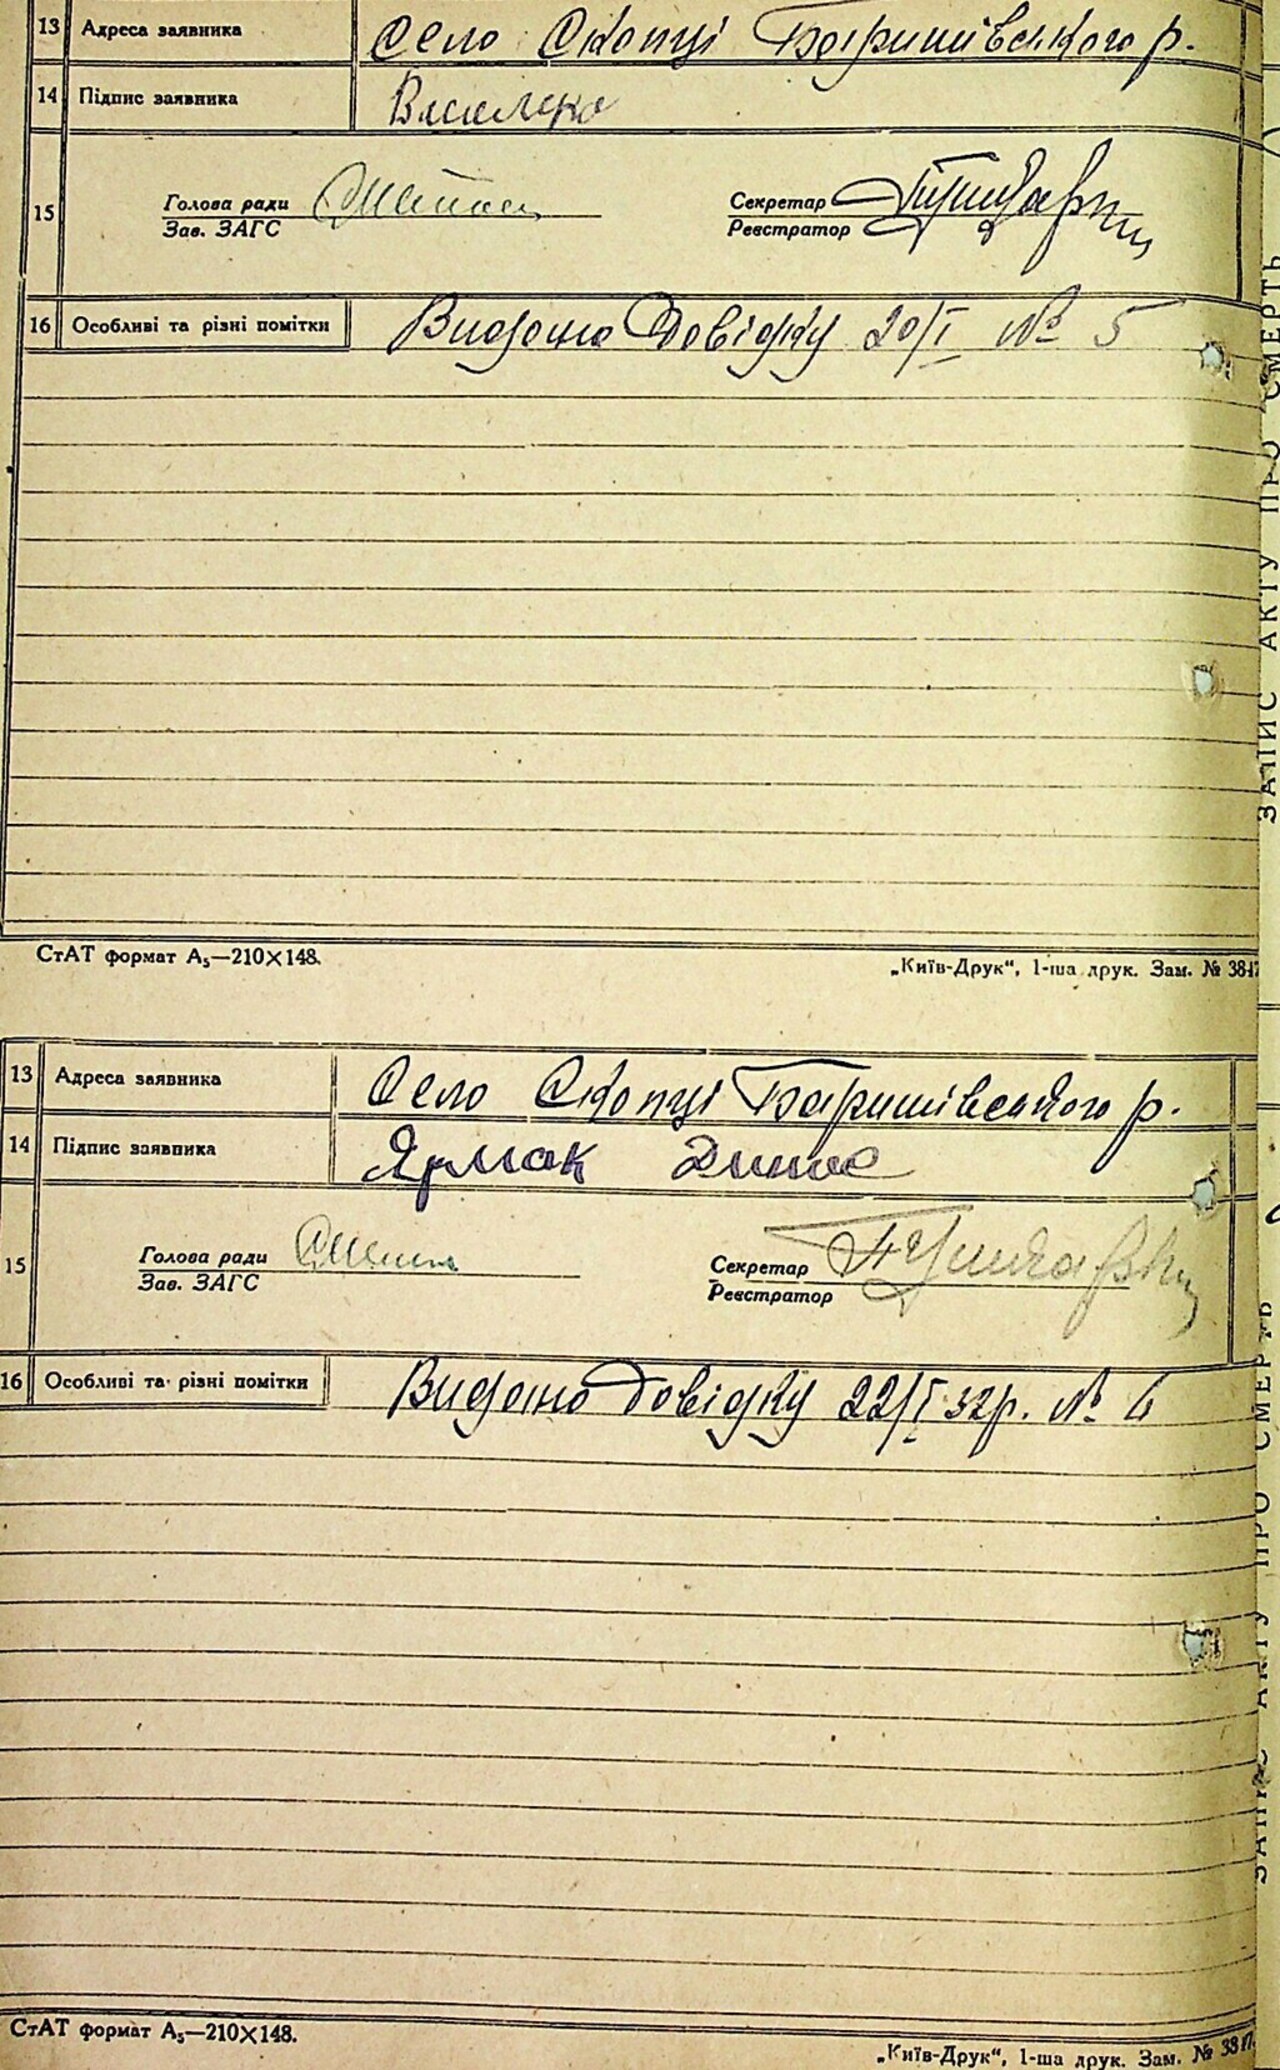 13 Адреса заявника Село Скопці Баришівського р.
14 Підпис заявника
15 Голова ради Секретар
Зав. ЗАГС Реєстратор
16 Особливі та різні помітки Видано Довідку 20/I № 5
СтАТ формат А₅—210×148.
„Київ-Друк“, 1-ша друк. Зам. №
13 Адреса заявника Село Скопці Баришівського р.
14 Підпис заявника Ярмак
15 Голова ради Секретар
Зав. ЗАГС Реєстратор
16 Особливі та різні помітки Видано Довідку 22/I 32р. № 6
СтАТ формат А₅—210×148.
„Київ-Друк“, 1-ша друк. Зам. №
ЗАПИС АКТУ ПРО СМЕРТЬ
ЗАПИС АКТУ ПРО СМЕРТЬ